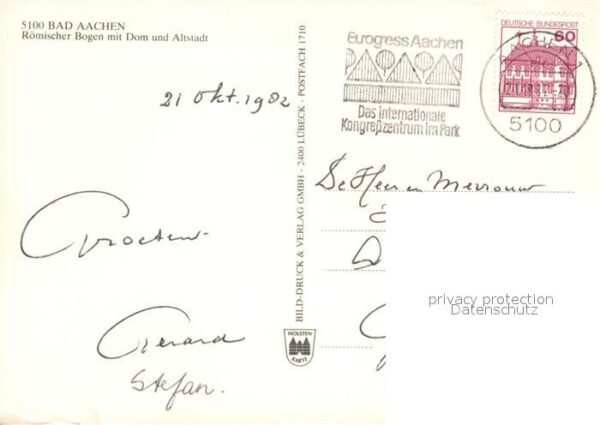 5100 BAD AACHEN
Römischer Bogen mit Dom und Altstadt
21 Okt. 1982
Groeten
Gerard
Stefan.
BILD-DRUCK & VERLAG GMBH - 2400 LÜBECK - POSTFACH 1710
HOLSTEN
KARTE
Eurogress Aachen
Das internationale
Kongreßzentrum im Park
DEUTSCHE BUNDESPOST
60
AACHEN 1
5100
De Heer en Mevrouw
privacy protection
Datenschutz